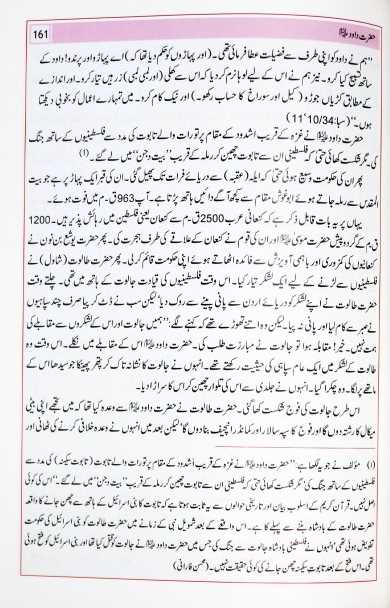 حضرت داود علیہ السلام 161
”ہم نے داود کو اپنی طرف سے فضیلت عطا فرمائی تھی۔ (اور پہاڑوں کو حکم دیا تھا کہ) اے پہاڑو اور پرندو! داود کے
ساتھ تسبیح کیا کرو۔ نیز ہم نے اس کے لیے لوہا نرم کردیا کہ اس سے کھلی (اور لمبی لمبی) زرہیں تیار کرو۔ اور اندازے
کے مطابق کڑیاں جوڑو (کیل اور سوراخ کا حساب رکھو۔) اور نیک کام کرو۔ میں تمہارے اعمال کو بخوبی دیکھتا
ہوں۔“ (سبا: 11,10/34)
حضرت داود علیہ السلام نے غزہ کے قریب اشدود کے مقام پر تورات والے تابوت کی مدد سے فلسطینیوں کے ساتھ جنگ
کی۔ مگر شکست کھائی حتیٰ کہ فلسطینی ان سے تابوت چھین کر رملہ کے قریب ”بیت دجن“ میں لے گئے۔ (1)
پھر ان کی حکومت وسیع ہوئی حتیٰ کہ ایلہ (عقبہ) سے دریائے فرات تک پھیل گئی۔ ان کی قبر ایک پہاڑ پر ہے جو بیت
المقدس سے رملہ جاتے ہوئے ابوغوش مقام سے کچھ آگے دائیں ہاتھ پڑتا ہے۔ آپ 963 ق۔م میں فوت ہوئے۔
یہاں پر یہ بات قابل ذکر ہے کہ کنعانی عرب 2500 ق۔م سے کنعان یعنی فلسطین میں رہائش پذیر ہیں۔ 1200
ق۔م کے گرد و پیش حضرت موسیٰ علیہ السلام اور ان کی قوم نے کنعان کے علاقے کی طرف ہجرت کی۔ پھر حضرت یوشع بن نون نے
کنعانیوں کی کمزوری اور باہمی آویزش سے فائدہ اٹھاتے ہوئے اپنی حکومت قائم کرلی۔ پھر حضرت طالوت (شاول) نے
فلسطینیوں سے لڑنے کے لیے ایک لشکر تیار کیا۔ اس وقت فلسطینیوں کی قیادت جالوت کے ہاتھ میں تھی۔ چلتے وقت
حضرت طالوت نے اپنے لشکر کو دریائے اردن سے پانی پینے سے روک دیا لیکن سب نے ڈٹ کر پیا صرف چند سپاہیوں
نے صبر سے کام لیا اور پانی نہ پیا۔ لیکن وہ اتنے تھوڑے تھے کہ کہنے لگے: ”ہمیں جالوت اور اس کے لشکروں سے مقابلے کی
ہمت نہیں۔ خیر! مقابلہ ہوا تو جالوت نے مبارزت طلب کی۔ حضرت داود علیہ السلام اس کے مقابلے میں نکلے۔ اس وقت وہ
طالوت کے لشکر میں ایک عام سپاہی کی حیثیت رکھتے تھے۔ انہوں نے جالوت کا نشانہ تاک کر پتھر پھینکا جو سیدھا اس کے
ماتھے پر لگا۔ وہ چکرا گیا۔ انہوں نے جلدی سے اس کی تلوار چھین کر اس کا سر اڑا دیا۔
اس طرح جالوت کی فوج شکست کھا گئی۔ حضرت طالوت نے حضرت داود علیہ السلام سے وعدہ کیا تھا کہ میں تجھے اپنی بیٹی
میکال کا رشتہ دوں گا اور فوج کا سپہ سالار اور کمانڈر انچیف بنا دوں گا لیکن بعد میں انہوں نے وعدہ خلافی کرنے کی ٹھانی اور
(1) مؤلف نے جو یہ لکھا ہے: ”حضرت داود علیہ السلام نے غزہ کے قریب اشدود کے مقام پر تورات والے تابوت (تابوت سکینہ) کی مدد سے
فلسطینیوں کے ساتھ جنگ کی“ مگر شکست کھائی حتیٰ کہ فلسطینی ان سے تابوت چھین کر رملہ کے قریب ”بیت دجن“ میں لے گئے۔“ اس کی کوئی
اصل نہیں۔ قرآن کریم کے اسلوب بیان اور تاریخی حوالوں سے یہ ثابت ہوتا ہے کہ تابوت کا بنی اسرائیل کے ہاتھ سے چھن جانے کا واقعہ
حضرت طالوت کے بادشاہ بننے سے پہلے کا ہے۔ اس واقعے کے بعد شمویل نبی کے زمانے میں حضرت طالوت کو بنی اسرائیل کی حکومت
تفویض ہوئی تھی، انہوں نے فلسطینی بادشاہ جالوت سے جنگ کی جس میں حضرت داود علیہ السلام نے جالوت کو قتل کیا تھا اور بنی اسرائیل کو فتح ہوئی
تھی۔ اس فتح کے بعد تابوت سکینہ چھن جانے کی کوئی حقیقت نہیں۔ (محسن فارانی)